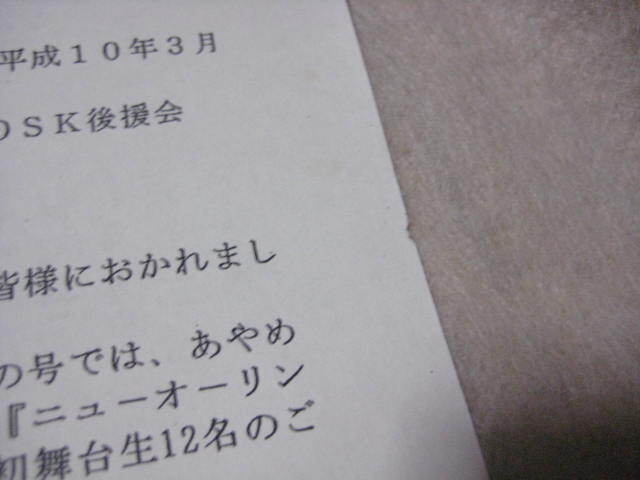 平成１０年３月
ＯＳＫ後援会
皆様におかれまし
の号では、あやめ
『ニューオーリン
初舞台生12名のご